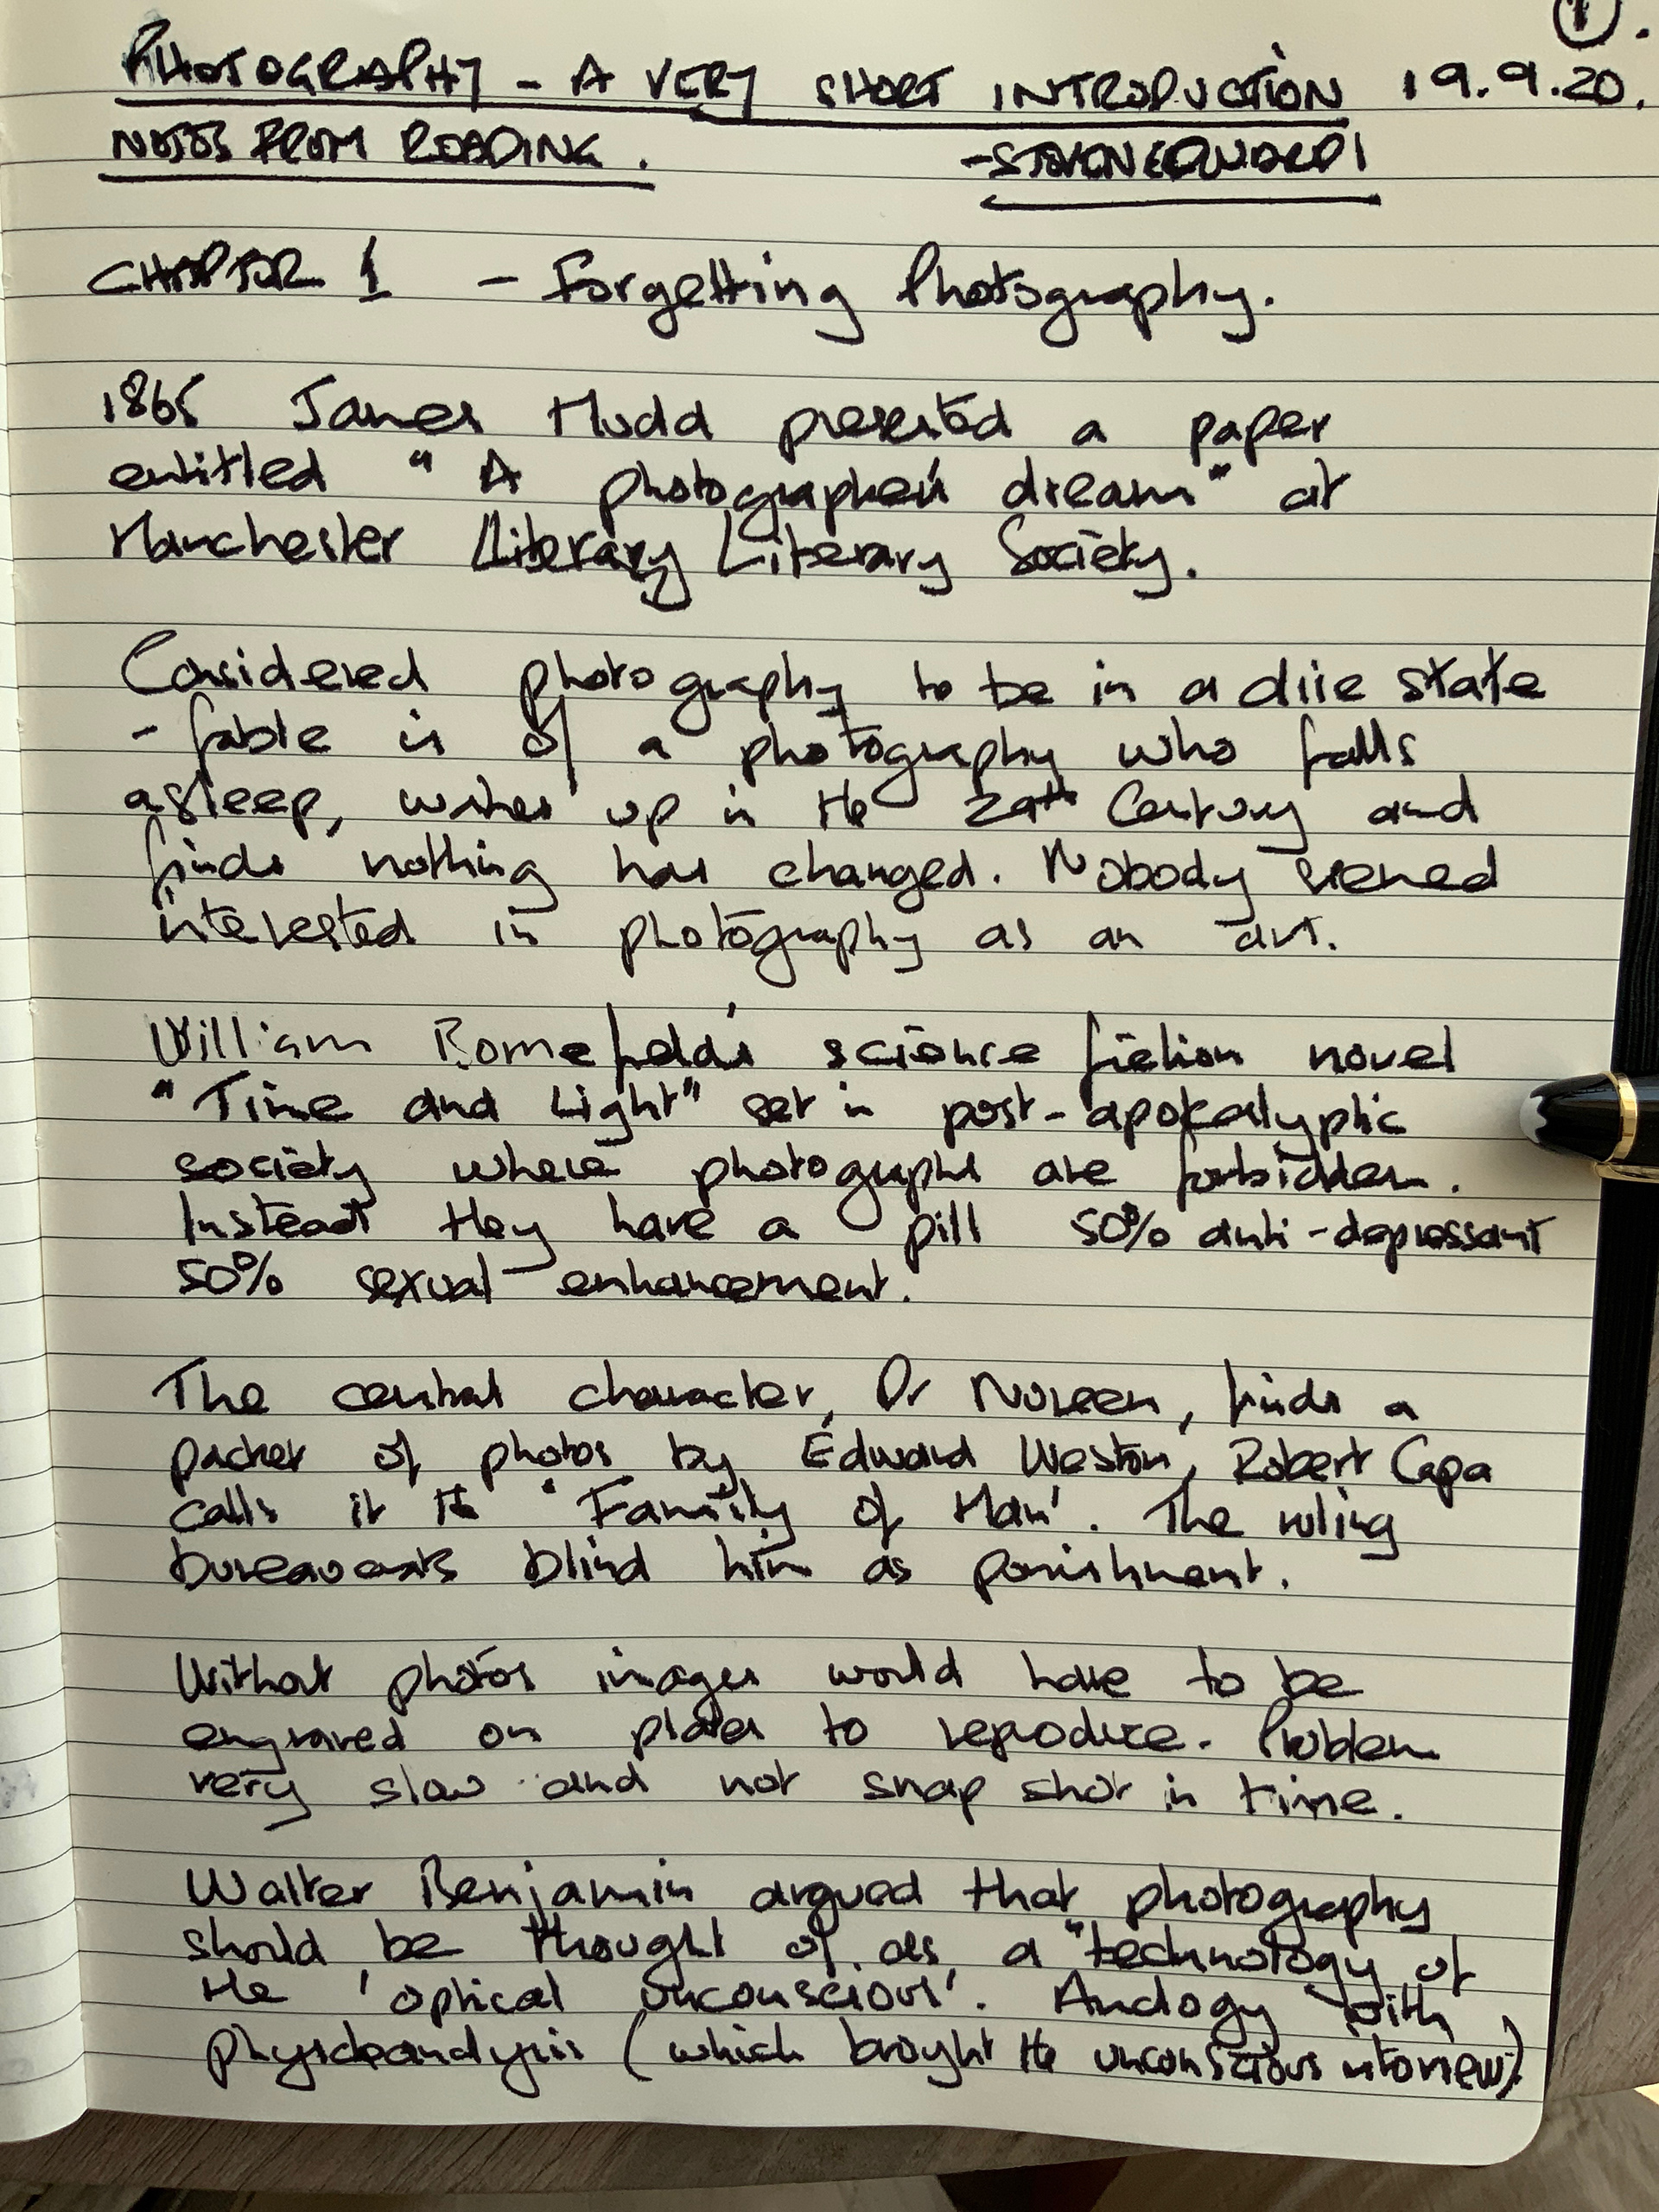 1.
PHOTOGRAPHY - A VERY SHORT INTRODUCTION 19.9.20.
NOTES FROM READING. - STEVEN EDWARDS
CHAPTER 1 - Forgetting Photography.
1865 James Mudd presented a paper
entitled "A photographer's dream" at
Manchester Literary Literary Society.
Considered photography to be in a dire state
- fable is of a photography who falls
asleep, wakes up in the 20th Century and
finds nothing has changed. Nobody seemed
interested in photography as an art.
William Bornefeld's science fiction novel
"Time and Light" set in post-apokalyptic
society where photographs are forbidden.
Instead they have a pill 50% anti-depressant
50% sexual enhancement.
The central character, Dr Noreen, finds a
packet of photos by Edward Weston, Robert Capa
calls it the 'Family of Man'. The ruling
bureaucrats blind him as punishment.
Without photos images would have to be
engraved on plates to reproduce. Problem
very slow and not snap shot in time.
Walter Benjamin argued that photography
should be thought of as a "technology of
the 'optical unconscious'. Analogy with
(which brought the unconscious into view).